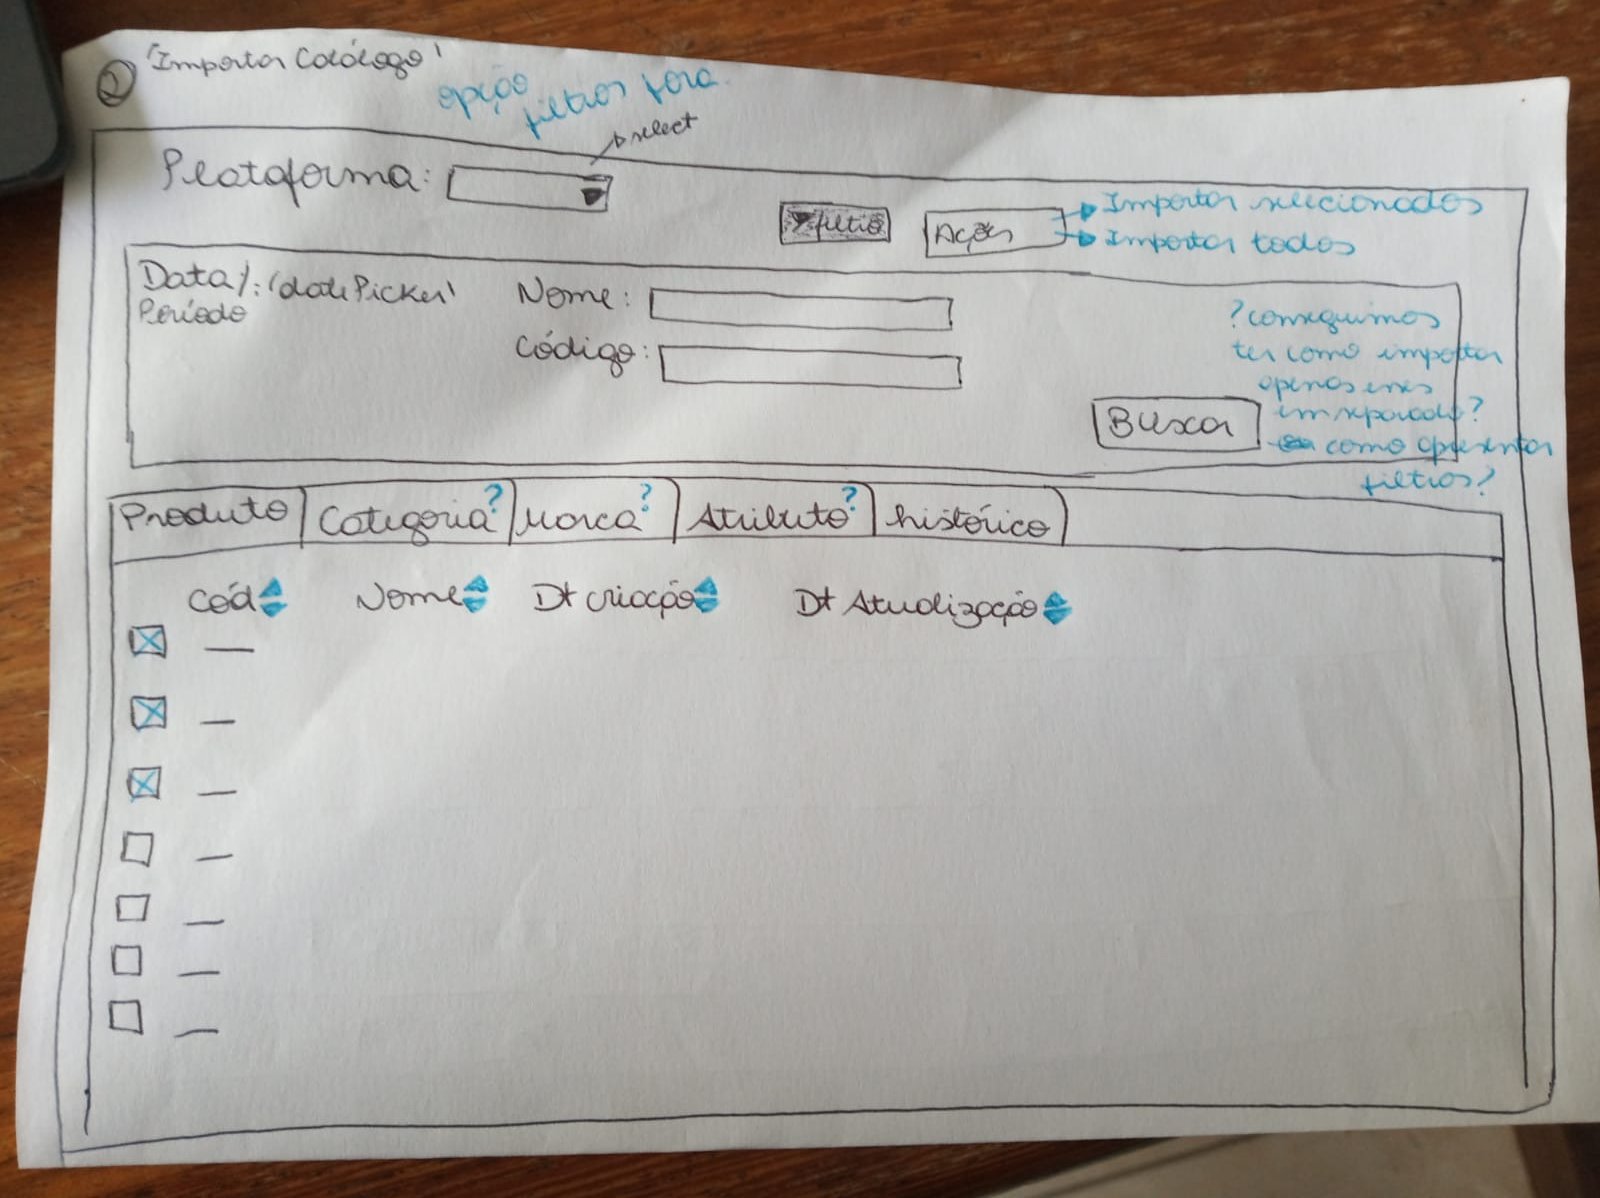 2 'Importar Catálogo'
opção
filtros fora
select
Plataforma:
filtro
Ações
Importar selecionados
Importar todos
Data/: 'datePicker'
Período
Nome:
Código:
? conseguimos
ter como importar
apenas esses
em separado?
como apresentar
filtros?
Buscar
Produto Categoria? Marca? Atributo? histórico
Cód Nome Dt criação Dt Atualização